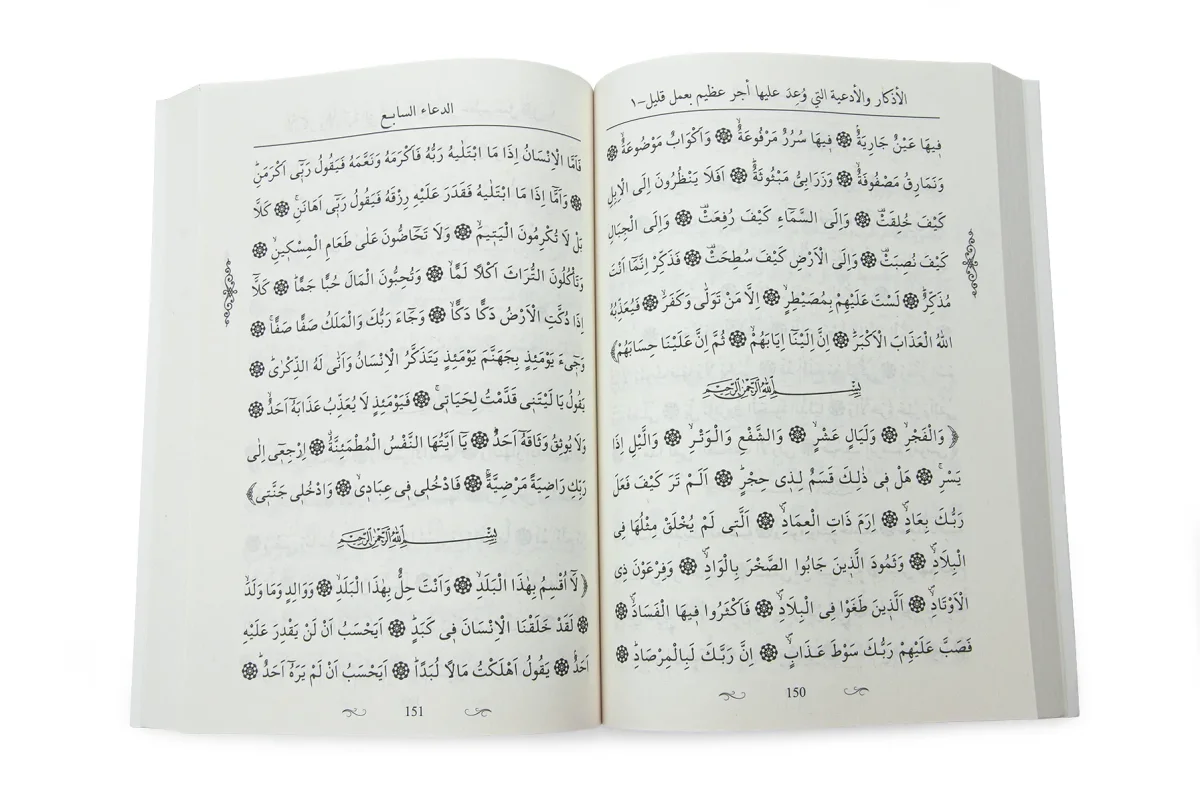 الأذكار والأدعية التي وُعِدَ عليها أجر عظيم بعمل قليل -١
فِيهَا عَيْنٌ جَارِيَةٌۢ ۞ فِيهَا سُرُرٌ مَرْفُوعَةٌۙ ۞ وَاَكْوَابٌ مَوْضُوعَةٌۙ ۞
وَنَمَارِقُ مَصْفُوفَةٌۙ ۞ وَزَرَابِيُّ مَبْثُوثَةٌۜ ۞ اَفَلَا يَنْظُرُونَ اِلَى الْاِبِلِ
كَيْفَ خُلِقَتْ۠ ۞ وَاِلَى السَّمَٓاءِ كَيْفَ رُفِعَتْ۠ ۞ وَاِلَى الْجِبَالِ
كَيْفَ نُصِبَتْ۠ ۞ وَاِلَى الْاَرْضِ كَيْفَ سُطِحَتْ۠ ۞ فَذَكِّرْ اِنَّمَٓا اَنْتَ
مُذَكِّرٌۜ ۞ لَسْتَ عَلَيْهِمْ بِمُصَيْطِرٍۙ ۞ اِلَّا مَنْ تَوَلّٰى وَكَفَرَۙ ۞ فَيُعَذِّبُهُ
اللّٰهُ الْعَذَابَ الْاَكْبَرَۜ ۞ اِنَّ اِلَيْنَٓا اِيَابَهُمْۙ ۞ ثُمَّ اِنَّ عَلَيْنَا حِسَابَهُمْ﴾
بِسْمِ اللّٰهِ الرَّحْمٰنِ الرَّحِيمِ
﴿وَالْفَجْرِۙ ۞ وَلَيَالٍ عَشْرٍۙ ۞ وَالشَّفْعِ وَالْوَتْرِۙ ۞ وَالَّيْلِ اِذَا
يَسْرِۚ ۞ هَلْ فِي ذٰلِكَ قَسَمٌ لِذِي حِجْرٍۜ ۞ اَلَمْ تَرَ كَيْفَ فَعَلَ
رَبُّكَ بِعَادٍۙ ۞ اِرَمَ ذَاتِ الْعِمَادِۙ ۞ اَلَّتِي لَمْ يُخْلَقْ مِثْلُهَا فِي
الْبِلَادِۙ ۞ وَثَمُودَ الَّذِينَ جَابُوا الصَّخْرَ بِالْوَادِۙ ۞ وَفِرْعَوْنَ ذِي
الْاَوْتَادِۙ ۞ اَلَّذِينَ طَغَوْا فِي الْبِلَادِۙ ۞ فَاَكْثَرُوا فِيهَا الْفَسَادَۙ ۞
فَصَبَّ عَلَيْهِمْ رَبُّكَ سَوْطَ عَذَابٍۙ ۞ اِنَّ رَبَّكَ لَبِالْمِرْصَادِۜ ۞
150
الدعاء السابع
فَاَمَّا الْاِنْسَانُ اِذَا مَا ابْتَلٰيهُ رَبُّهُ فَاَكْرَمَهُ وَنَعَّمَهُ فَيَقُولُ رَبِّٓي اَكْرَمَنِۜ
۞ وَاَمَّٓا اِذَا مَا ابْتَلٰيهُ فَقَدَرَ عَلَيْهِ رِزْقَهُ فَيَقُولُ رَبِّٓي اَهَانَنِۚ ۞ كَلَّا
بَلْ لَا تُكْرِمُونَ الْيَتِيمَۙ ۞ وَلَا تَحَٓاضُّونَ عَلٰى طَعَامِ الْمِسْكِينِۙ ۞
وَتَأْكُلُونَ التُّرَاثَ اَكْلًا لَمًّاۙ ۞ وَتُحِبُّونَ الْمَالَ حُبًّا جَمًّاۜ ۞ كَلَّٓا
اِذَا دُكَّتِ الْاَرْضُ دَكًّا دَكًّاۙ ۞ وَجَٓاءَ رَبُّكَ وَالْمَلَكُ صَفًّا صَفًّاۚ ۞
وَجِٓيءَ يَوْمَئِذٍ بِجَهَنَّمَ يَوْمَئِذٍ يَتَذَكَّرُ الْاِنْسَانُ وَاَنّٰى لَهُ الذِّكْرٰىۜ ۞
يَقُولُ يَا لَيْتَنِي قَدَّمْتُ لِحَيَاتِيۚ ۞ فَيَوْمَئِذٍ لَا يُعَذِّبُ عَذَابَهُٓ اَحَدٌۙ ۞
وَلَا يُوثِقُ وَثَاقَهُٓ اَحَدٌۜ ۞ يَٓا اَيَّتُهَا النَّفْسُ الْمُطْمَئِنَّةُۗ ۞ اِرْجِعِٓي اِلٰى
رَبِّكِ رَاضِيَةً مَرْضِيَّةًۚ ۞ فَادْخُلِي فِي عِبَادِيۙ ۞ وَادْخُلِي جَنَّتِي﴾
بِسْمِ اللّٰهِ الرَّحْمٰنِ الرَّحِيمِ
﴿لَٓا اُقْسِمُ بِهٰذَا الْبَلَدِۙ ۞ وَاَنْتَ حِلٌّ بِهٰذَا الْبَلَدِۙ ۞ وَوَالِدٍ وَمَا وَلَدَۙ
۞ لَقَدْ خَلَقْنَا الْاِنْسَانَ فِي كَبَدٍۜ ۞ اَيَحْسَبُ اَنْ لَنْ يَقْدِرَ عَلَيْهِ
اَحَدٌۢ ۞ يَقُولُ اَهْلَكْتُ مَالًا لُبَدًاۜ ۞ اَيَحْسَبُ اَنْ لَمْ يَرَهُٓ اَحَدٌۜ ۞
151